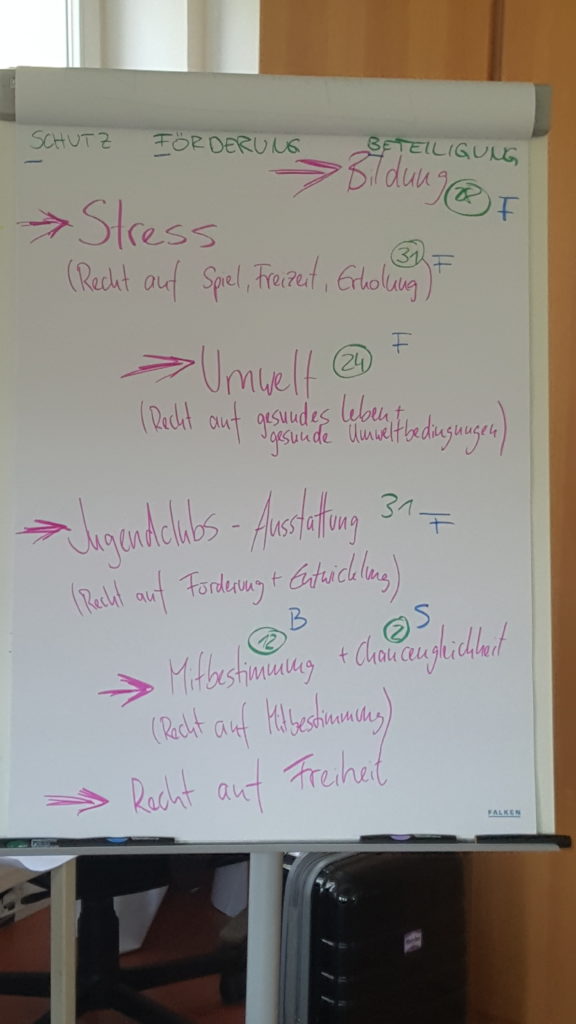 SCHUTZ FÖRDERUNG BETEILIGUNG
→ Bildung 28 F
→ Stress
(Recht auf Spiel, Freizeit, Erholung) 31 F
→ Umwelt 24 F
(Recht auf gesundes Leben +
gesunde Umweltbedingungen)
→ Jugendclubs - Ausstattung 31 F
(Recht auf Förderung + Entwicklung)
12 B 2 S
→ Mitbestimmung + Chancengleichheit
(Recht auf Mitbestimmung)
→ Recht auf Freiheit
FALKEN